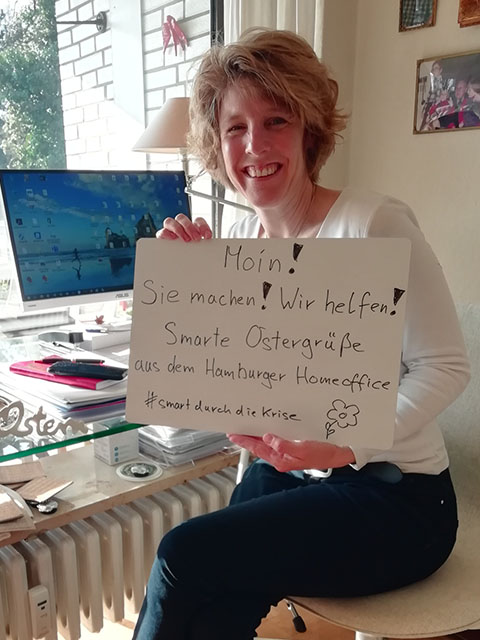 Moin!
Sie machen! Wir helfen!
Smarte Ostergrüße
aus dem Hamburger Homeoffice
#smart durch die Krise
ASUS
Ostern